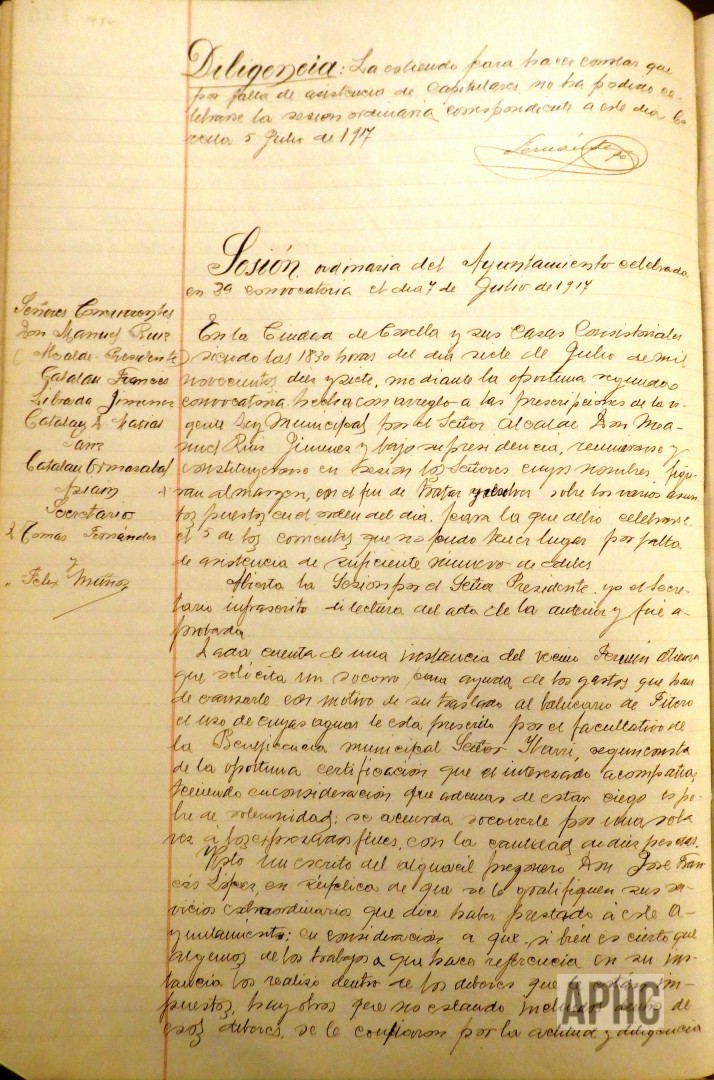 Diligencia: La estiendo para hacer constar que
por falta de asistencia de Capitulares no ha podido ce-
lebrarse la sesion ordinaria correspondiente a este dia Co-
rella 5 Julio de 1917
Sesión ordinaria del Ayuntamiento celebrada
en 2a convocatoria el dia 7 de Julio de 1917
Señores Concurrentes
Don Manuel Ruiz
(Alcalde-Presidente)
Catalan Frances
Librada Jimenez
Catalan
Sanz
Catalan Ormazabal
Arian
Secretario
Tomas Fernández
y
Felix Muñoz
En la Ciudad de Corella y sus Casas Consistoriales
siendo las 1830 horas del dia siete de Julio de mil
novecientos diez y siete, mediante la oportuna segunda
convocatoria hecha con arreglo a las prescripciones de la vi-
gente Ley Municipal por el Señor Alcalde Don Ma-
nuel Ruiz Jimenez y bajo su presidencia, reunieronse y
constituyeronse en sesion los Señores cuyos nombres figu-
ran al margen, con el fin de tratar y resolver sobre los varios asun-
tos puestos en el orden del dia para la que debio celebrarse
el 5 de los corrientes que no pudo tener lugar por falta
de asistencia de suficiente número de ediles
Abierta la Sesion por el Señor Presidente, yo el Secre-
tario infrascrito di lectura del acta de la anterior y fué a-
probada
Dada cuenta de una instancia del vecino Fermin
que solicita un socorro para ayuda de los gastos que han
de causarle con motivo de su traslado al balneario de Fitero
el uso de cuyas aguas le esta prescrito por el facultativo de
la Beneficencia municipal Señor Ibarri, segun consta
de la oportuna certificación que el interesado acompaña,
teniendo en consideración que ademas de estar ciego es po-
bre de solemnidad; se acuerda socorrerle por una sola
vez á los expresados fines, con la cantidad de diez pesetas.
Visto un escrito del alguacil pregonero Don José
López, en súplica de que se le gratifiquen sus ser-
vicios extraordinarios que dice haber prestado á este A-
yuntamiento; en consideración a que, si bien es cierto que
algunos de los trabajos a que hace referencia en su ins-
tancia los realizó dentro de los deberes que le están im-
puestos, hay otros que no estando incluidos dentro de
esos deberes, se le confiaron por la actitud y diligencia
APHC